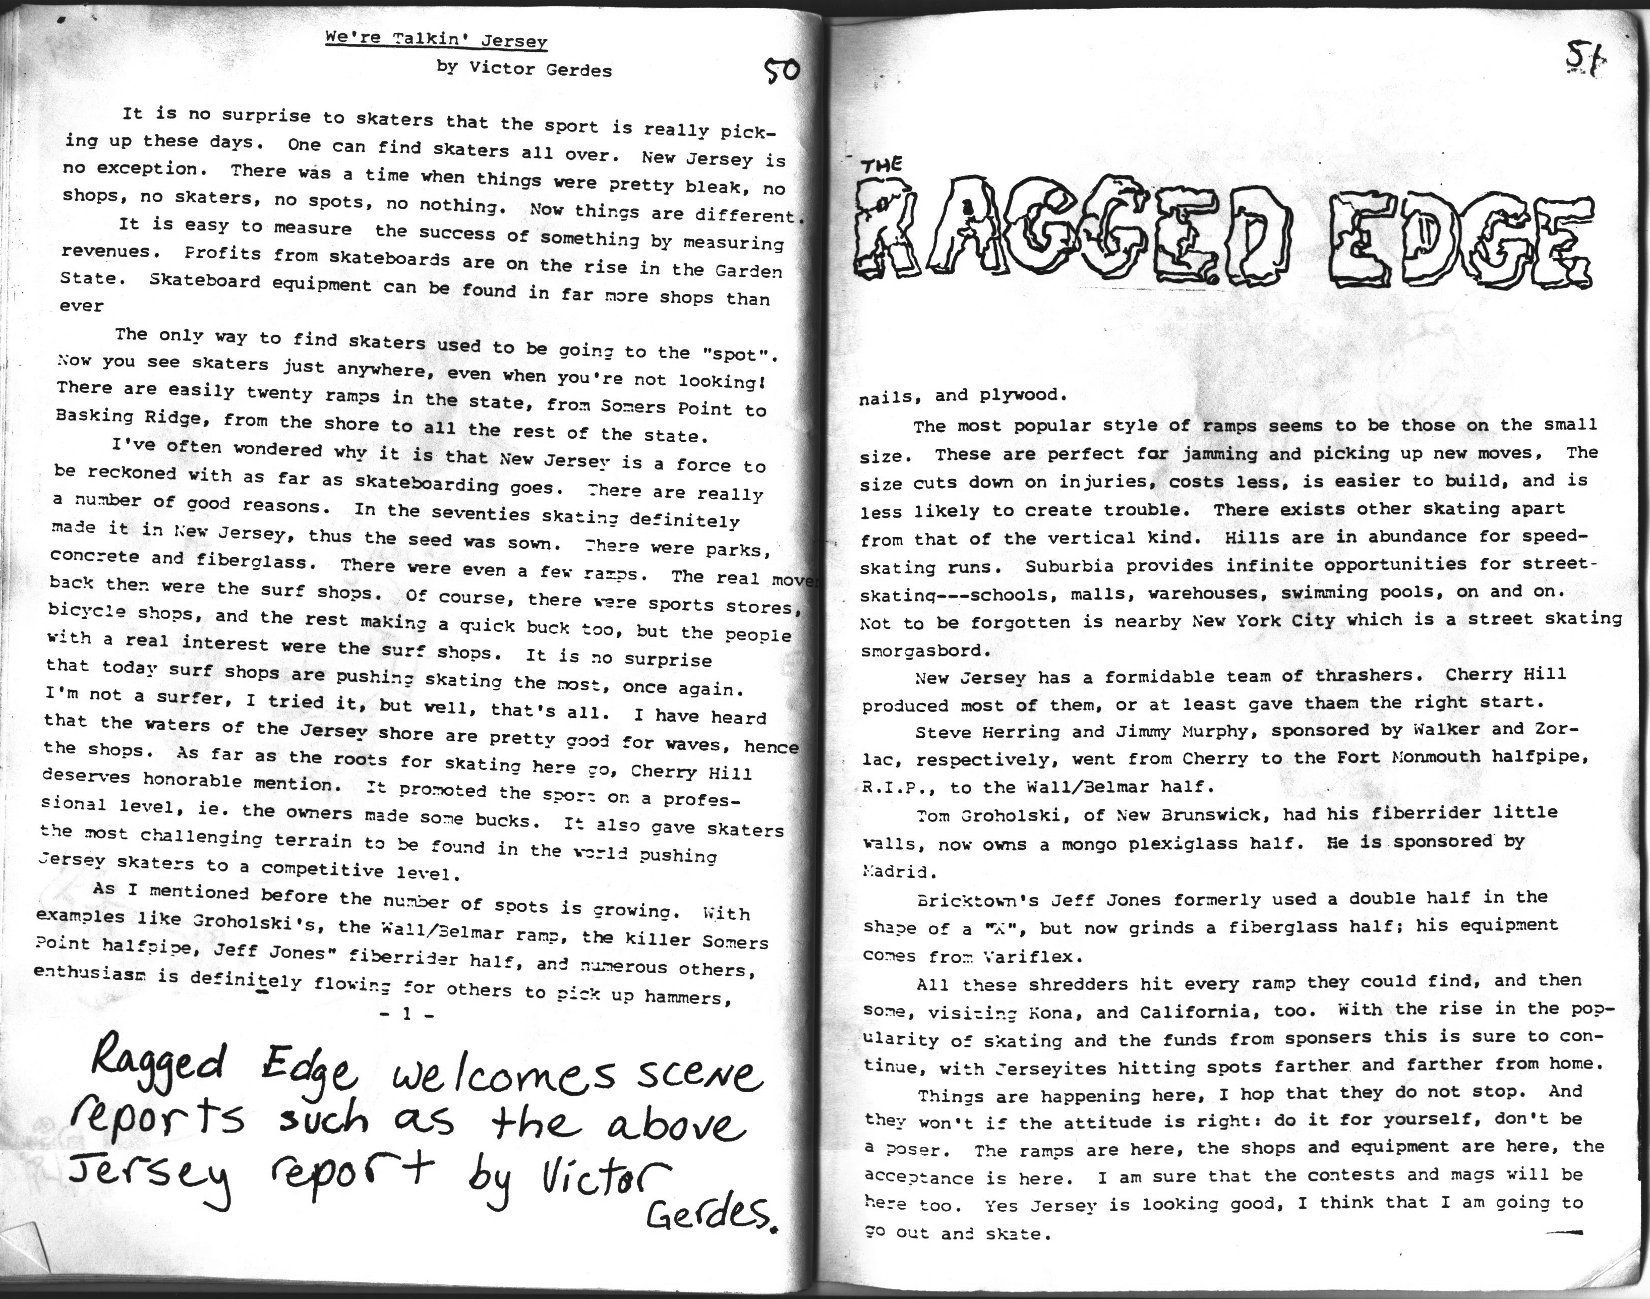 We're Talkin' Jersey
by Victor Gerdes
50
It is no surprise to skaters that the sport is really pick-
ing up these days.  One can find skaters all over.  New Jersey is
no exception.  There was a time when things were pretty bleak, no
shops, no skaters, no spots, no nothing.  Now things are different.
It is easy to measure  the success of something by measuring
revenues.  Profits from skateboards are on the rise in the Garden
State.  Skateboard equipment can be found in far more shops than
ever
The only way to find skaters used to be going to the "spot".
Now you see skaters just anywhere, even when you're not looking!
There are easily twenty ramps in the state, from Somers Point to
Basking Ridge, from the shore to all the rest of the state.
I've often wondered why it is that New Jersey is a force to
be reckoned with as far as skateboarding goes.  There are really
a number of good reasons.  In the seventies skating definitely
made it in New Jersey, thus the seed was sown.  There were parks,
concrete and fiberglass.  There were even a few ramps.  The real move
back then were the surf shops.  Of course, there were sports stores,
bicycle shops, and the rest making a quick buck too, but the people
with a real interest were the surf shops.  It is no surprise
that today surf shops are pushing skating the most, once again.
I'm not a surfer, I tried it, but well, that's all.  I have heard
that the waters of the Jersey shore are pretty good for waves, hence
the shops.  As far as the roots for skating here go, Cherry Hill
deserves honorable mention.  It promoted the sport on a profes-
sional level, ie. the owners made some bucks.  It also gave skaters
the most challenging terrain to be found in the world pushing
Jersey skaters to a competitive level.
As I mentioned before the number of spots is growing.  With
examples like Groholski's, the Wall/Belmar ramp, the killer Somers
Point halfpipe, Jeff Jones" fiberrider half, and numerous others,
enthusiasm is definitely flowing for others to pick up hammers,
- 1 -
Ragged Edge welcomes scene
reports such as the above
Jersey report by Victor
Gerdes.
51
THE
RAGGED EDGE
nails, and plywood.
The most popular style of ramps seems to be those on the small
size.  These are perfect for jamming and picking up new moves,  The
size cuts down on injuries, costs less, is easier to build, and is
less likely to create trouble.  There exists other skating apart
from that of the vertical kind.  Hills are in abundance for speed-
skating runs.  Suburbia provides infinite opportunities for street-
skating---schools, malls, warehouses, swimming pools, on and on.
Not to be forgotten is nearby New York City which is a street skating
smorgasbord.
New Jersey has a formidable team of thrashers.  Cherry Hill
produced most of them, or at least gave thaem the right start.
Steve Herring and Jimmy Murphy, sponsored by Walker and Zor-
lac, respectively, went from Cherry to the Fort Monmouth halfpipe,
R.I.P., to the Wall/Belmar half.
Tom Groholski, of New Brunswick, had his fiberrider little
walls, now owns a mongo plexiglass half.  He is sponsored by
Madrid.
Bricktown's Jeff Jones formerly used a double half in the
shape of a "X", but now grinds a fiberglass half; his equipment
comes from Variflex.
All these shredders hit every ramp they could find, and then
some, visiting Kona, and California, too.  With the rise in the pop-
ularity of skating and the funds from sponsers this is sure to con-
tinue, with Jerseyites hitting spots farther and farther from home.
Things are happening here, I hope that they do not stop.  And
they won't if the attitude is right: do it for yourself, don't be
a poser.  The ramps are here, the shops and equipment are here, the
acceptance is here.  I am sure that the contests and mags will be
here too.  Yes Jersey is looking good, I think that I am going to
go out and skate.